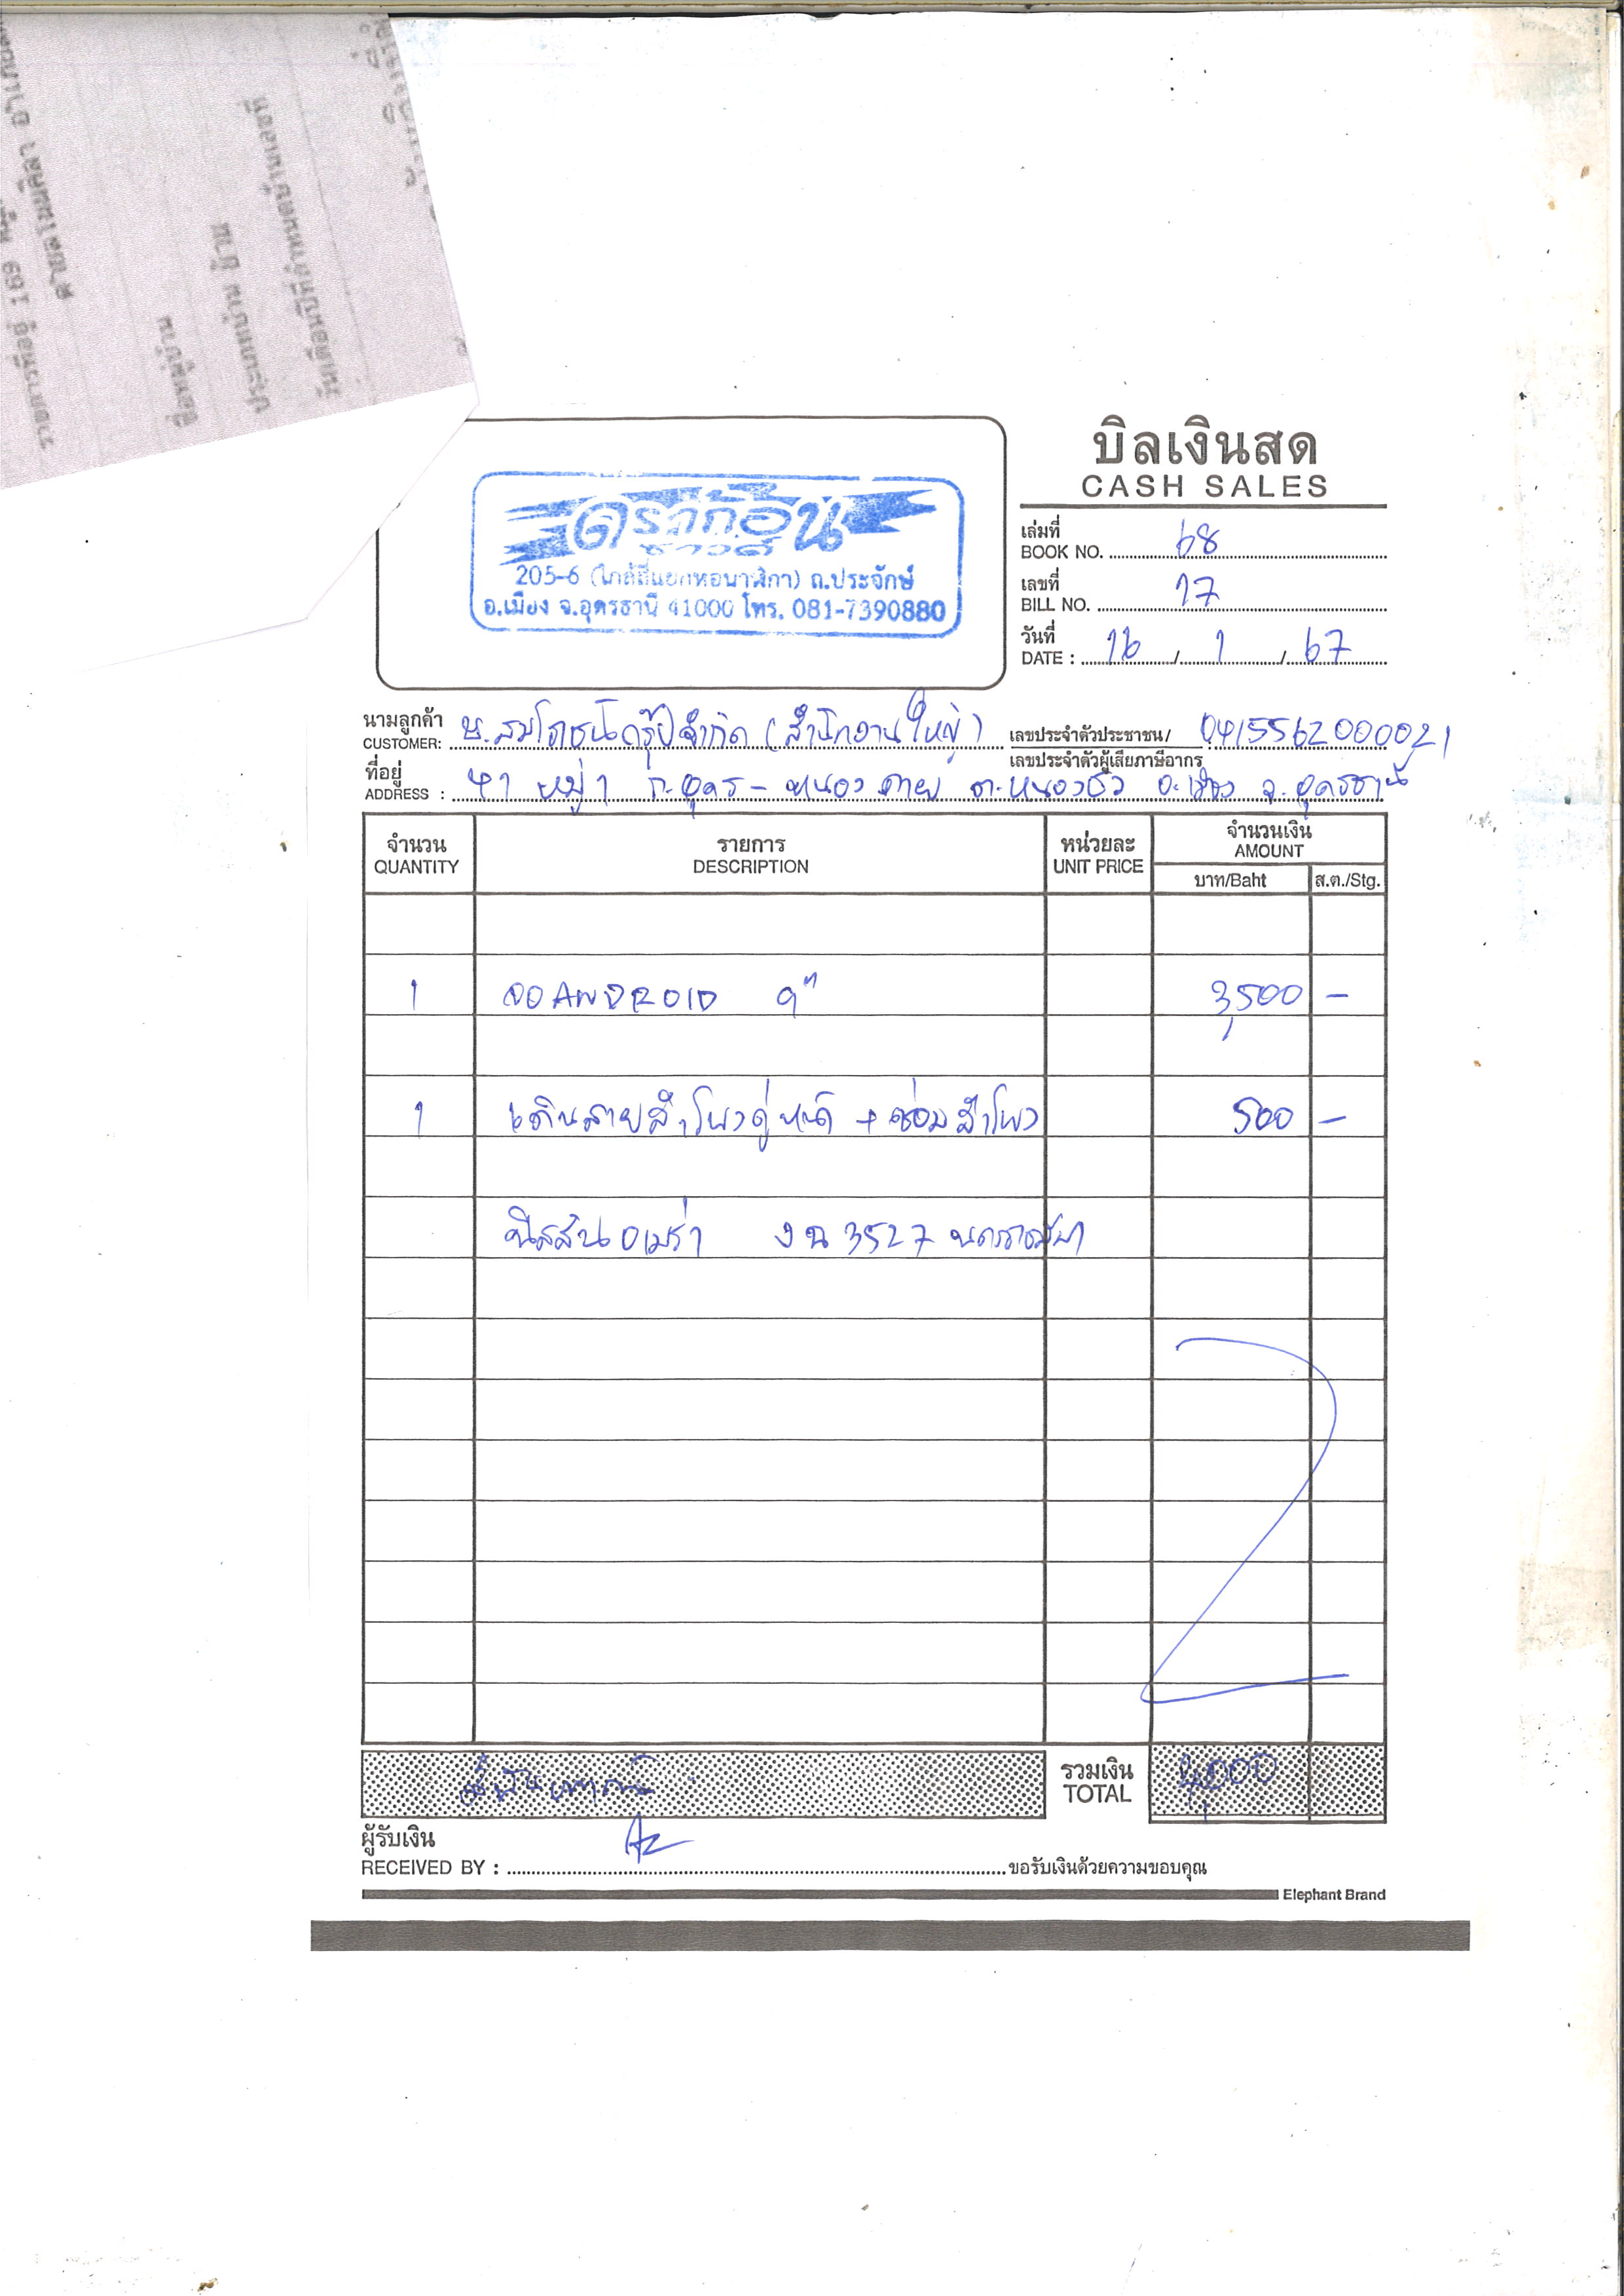 บิลเงินสด
CASH SALES
ดราก้อน
ซาวด์
205-6 (ใกล้สี่แยกหอนาฬิกา) ถ.ประจักษ์
อ.เมือง จ.อุดรธานี 41000 โทร. 081-7390880
เล่มที่
BOOK NO. 68
เลขที่
BILL NO. 17
วันที่
DATE : 16 / 1 / 67
นามลูกค้า
CUSTOMER: บ.สมโภชน์กรุ๊ป จำกัด (สำนักงานใหญ่) เลขประจำตัวประชาชน/ 0415562000021
เลขประจำตัวผู้เสียภาษีอากร
ที่อยู่
ADDRESS : 41 หมู่ 1 ถ.อุดร - หนองคาย ต.หนองบัว อ.เมือง จ.อุดรธานี
จำนวน รายการ หน่วยละ จำนวนเงิน
QUANTITY DESCRIPTION UNIT PRICE AMOUNT
บาท/Baht ส.ต./Stg.
1 จอ ANDROID 9" 3,500 -
1 เดินสายลำโพงคู่หน้า + ซ่อมลำโพง 500 -
นีสสันอเมร่า 3527 นครราชสีมา
สี่พันบาท รวมเงิน 4,000
TOTAL
ผู้รับเงิน
RECEIVED BY : ขอรับเงินด้วยความขอบคุณ
Elephant Brand